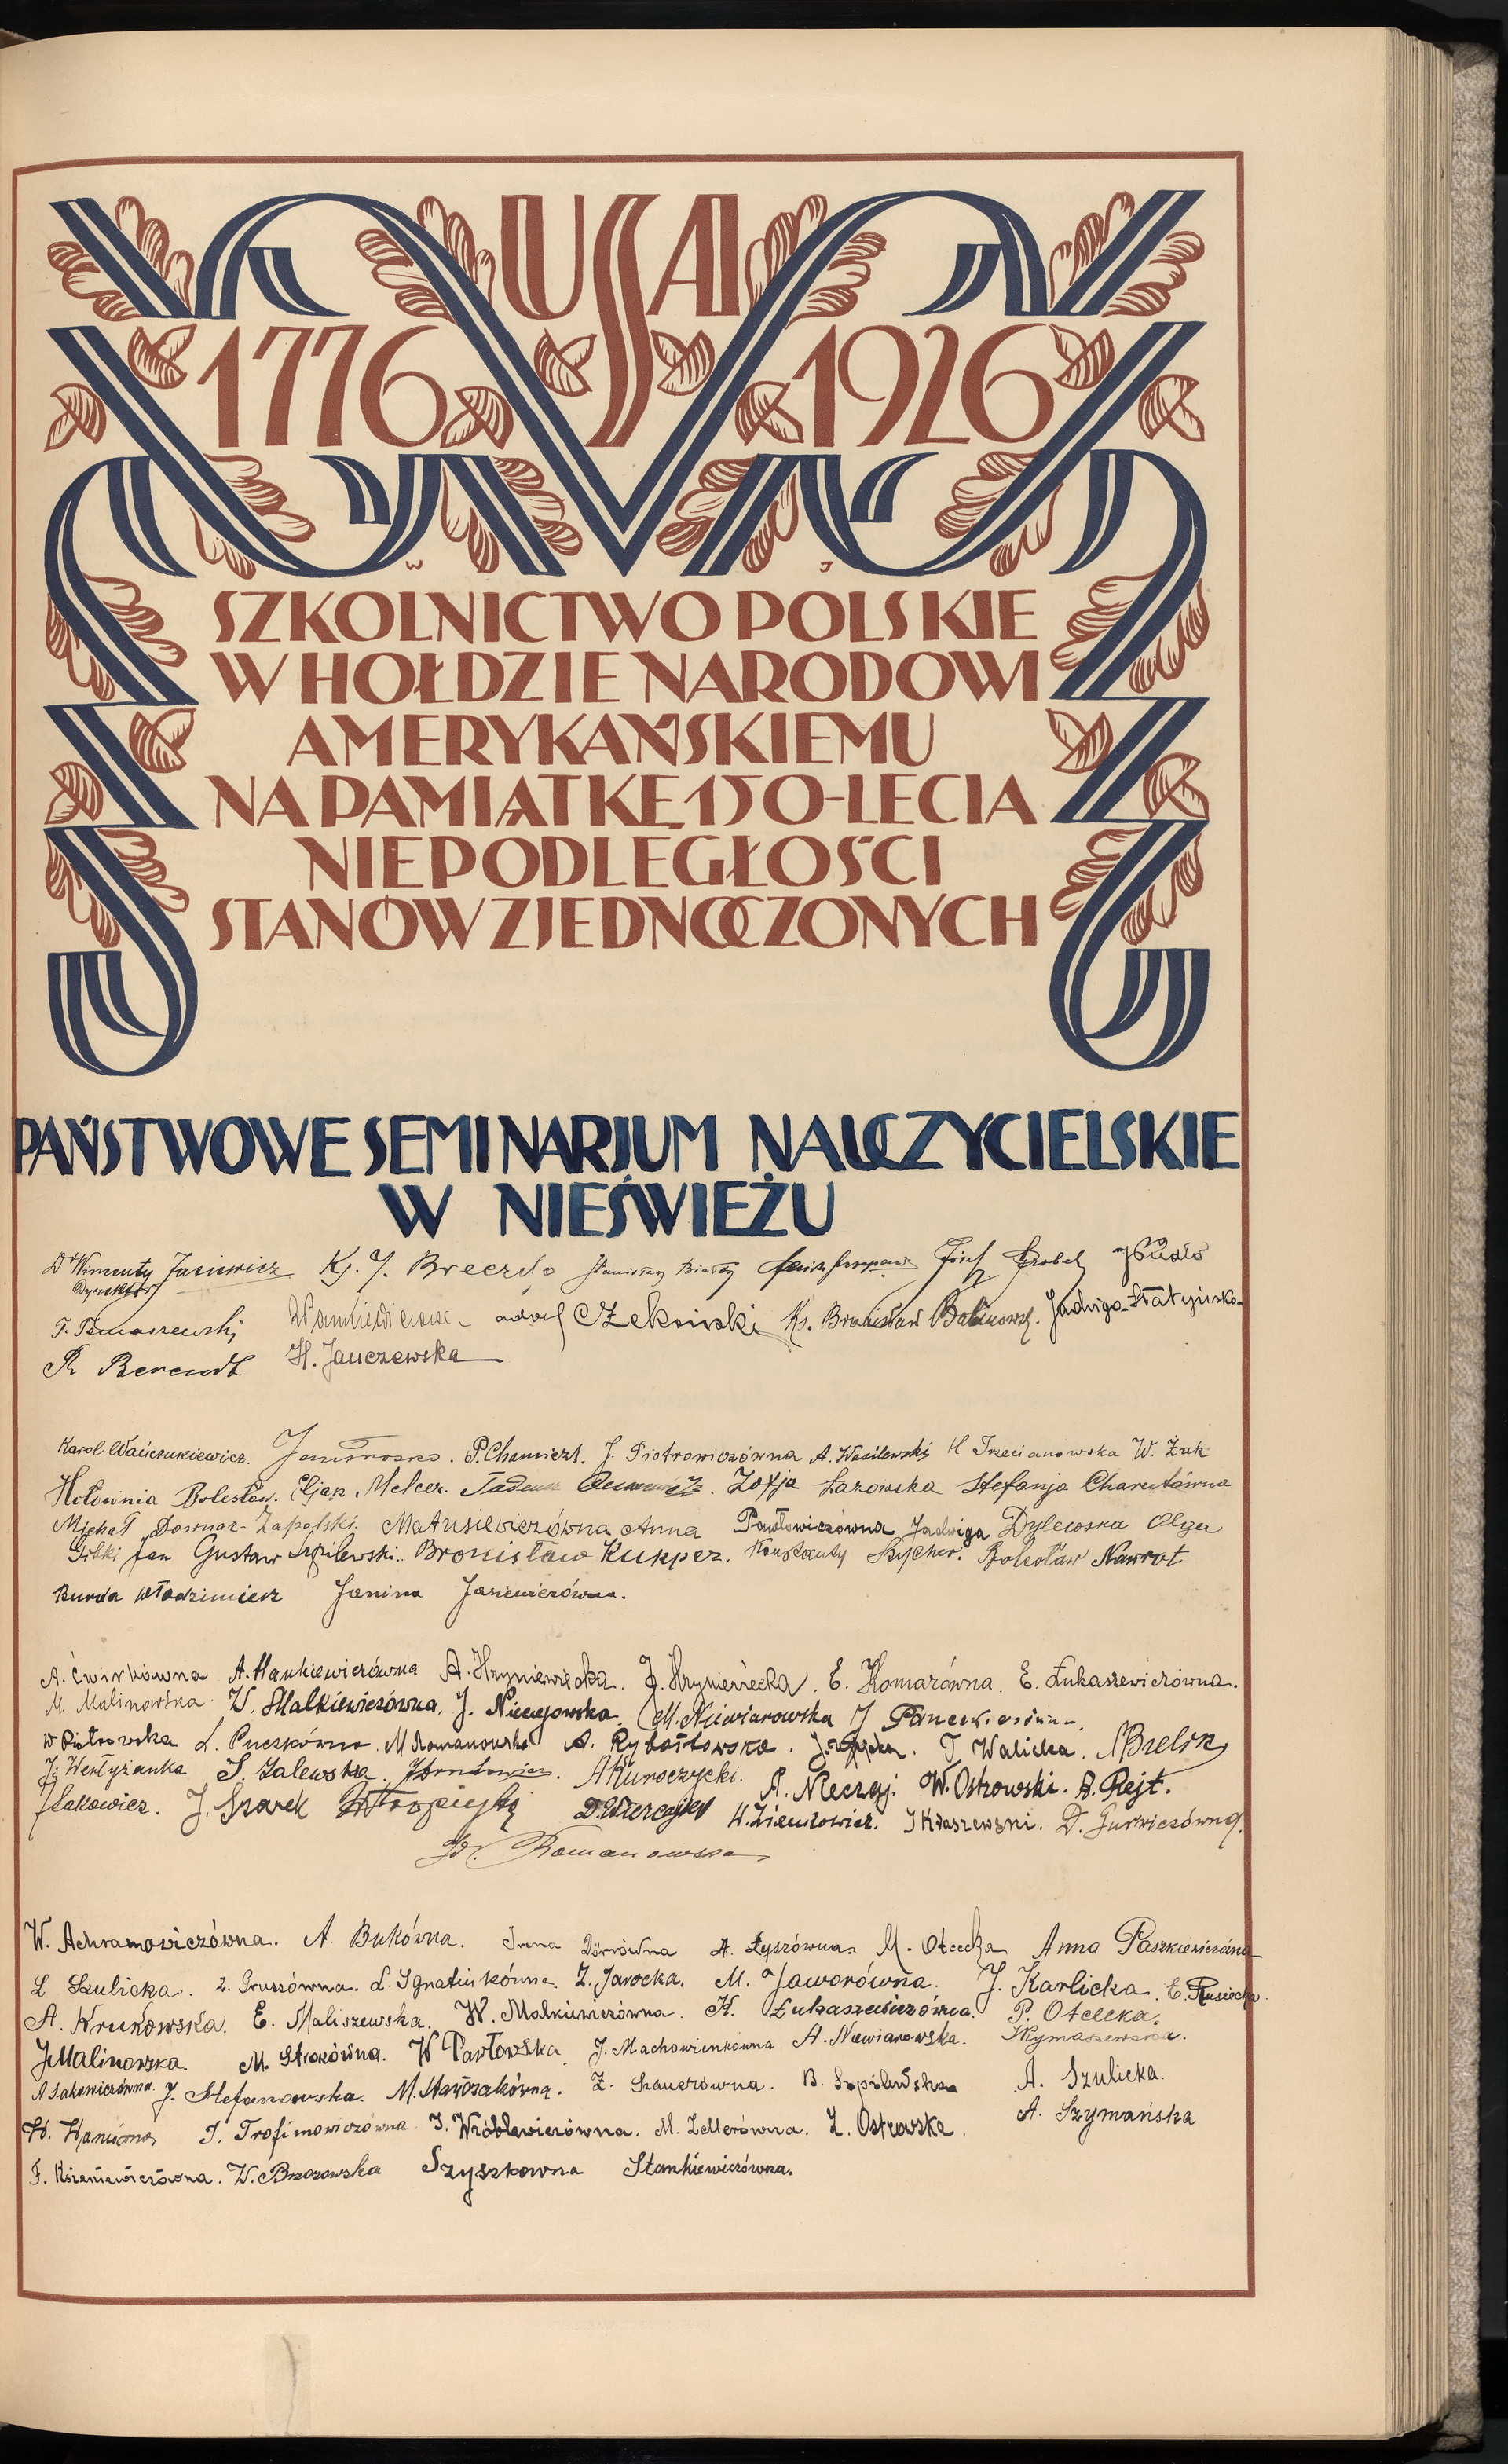 USA
1776 1926
W J
SZKOLNICTWO POLSKIE
W HOŁDZIE NARODOWI
AMERYKAŃSKIEMU
NA PAMIĄTKĘ 150-LECIA
NIEPODLEGŁOŚCI
STANÓW ZJEDNOCZONYCH
PAŃSTWOWE SEMINARJUM NAUCZYCIELSKIE
W NIEŚWIEŻU
Dr Wincenty Jasiewicz Ks. J. Stanisław Józef
Dyrektor
Adolf Ks. Bronisław Jadwiga
R Berendt H. Janczewska
Karol Wańczukiewicz. J. Piotrowiczówna A. Wasilewski H Trzecianowska W. Żuk
Hołownia Bolesław. Eljasz Melcer. Tadeusz Zofja Łazowska Stefanja Charutówna
Michał Downar-Zapolski. Matusiewiczówna Anna Pawłowiczówna Jadwiga Dylewska Olga
Jan Gustaw Szpilewski. Bronisław Kukper. Konstanty Bolesław Nawrot
Burda Włodzimierz Janina Jasiewiczówna.
A. Ćwirkówna A. Hankiewiczówna A. Hryniewiecka. J. Hryniewiecka. E. Komarówna. E. Łukaszewiczówna.
M. Malinowska. W. Małkiewiczówna, J. Nieciejowska. M. Niewiarowska J
W Piotrowska L. Puczkówna. M Romanowska A. Rybałtowska. T. Walicka.
J. Wertyżanka S. Zalewska. A. Nieczaj. W. Ostrowski. B. Rejt.
J. Srarek H. Zienkowicz. J Kraszewski. D. Gurwiczówna.
Romanowska
W. Achramowiczówna. A. Bukówna. Irena A. Łyszówna. M. Otcecka Anna Paszkiewiczówna
L Szulicka. Z. Gruszówna. L. Ignatiukówna Z. Jarocka. M. Jaworówna. J. Karlicka. E. Rusiecka.
A. Krukowska. E. Maliszewska. W. Małkiewiczówna. H. Łukaszewiczówna. P. Otcecka.
J Malinowska. M. W Pawłowska. J. Machowienkówna A. Niewiarowska.
A Sakowiczówna. J. Stefanowska. M. Stawszakówna. Z. B. A. Szulicka.
J. Trofimowiczówna J. Wróblewiczówna. M. Zellerówna. Z. Ostrowska. A. Szymańska
F. W. Brzozowska Szyszkowna Stankiewiczówna.